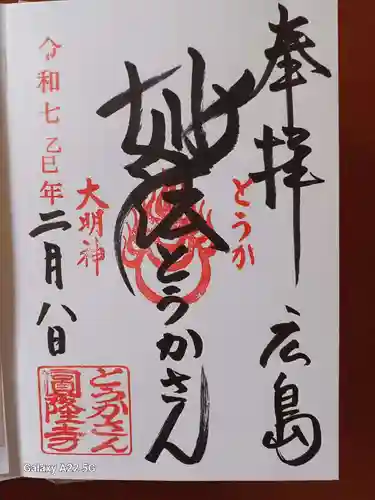 奉拝 広島
とうか
妙法とうかさん
大明神
令和七乙巳年二月八日
とうかさん
圓隆寺
Galaxy A22 5G